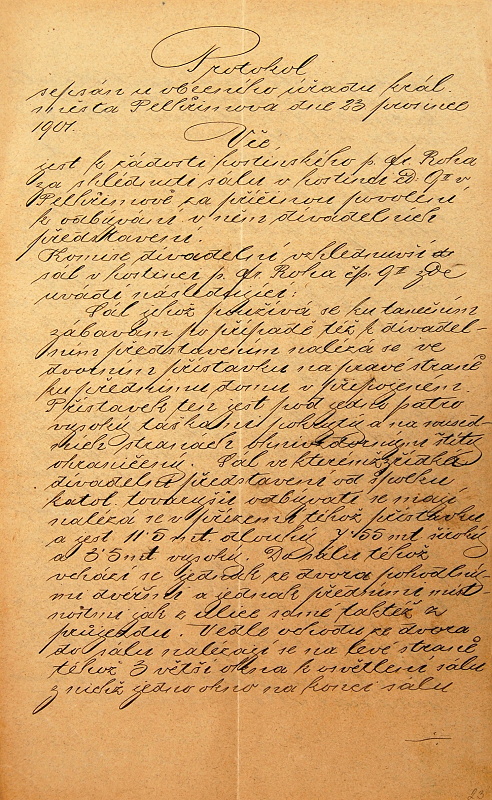 Protokol
sepsán u obecního úřadu král.
města Pelhřimova dne 23 prosince
1901.
Vče
jest k žádosti hostinského p. Fr. Roha
za shlédnutí sálu v hostinci čp. 92 v
Pelhřimově za příčinou povolení
k odbývání v něm divadelních
představení.
Komise divadelní vzhlednuvši
sál v hostinci p. Fr. Roha čp. 92 zde
uvádí následující:
Sál jehož používá se ku tanečním
zábavám po případě též k divadel-
ním představením nalézá se ve
dvorním přístavku na pravé straně
ku přednímu domu v připojeném.
Přístavek ten jest pod jedno patro
vysoký taškami pokrytý a na soused-
ních stranách štíty
ohraničený. Sál ve kterémž zřídka
divadelní představení od spolku
katol. tovaryšů odbývati se mají
nalézá se v přízemí téhož přístavku
a jest 11·5 mt. dlouhý 7·55 mt široký
a 3·5 mt vysoký. Do sálu téhož
vchází se jednak ze dvora pohodlný-
mi dveřmi a jednak předními míst-
nostmi jak z ulice samé taktéž z
průjezdu. Vedle vchodu ze dvora
do sálu nalézají se na levé straně
téhož 3 větší okna k osvětlení sálu
z nichž jedno okno na konci sálu
23